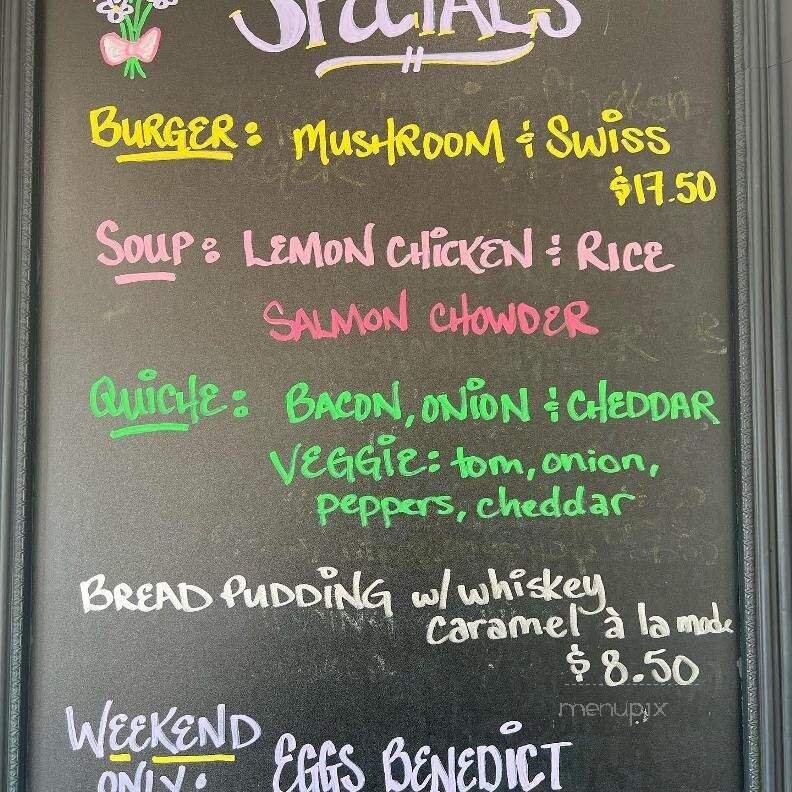 SPECIALS
BURGER: MUSHROOM & SWISS
$17.50
SOUP: LEMON CHICKEN & RICE
SALMON CHOWDER
QUICHE: BACON, ONION & CHEDDAR
VEGGIE: tom, onion,
peppers, cheddar
BREAD PUDDING w/ whiskey
caramel à la mode
$8.50
menupix
WEEKEND
ONLY: EGGS BENEDICT